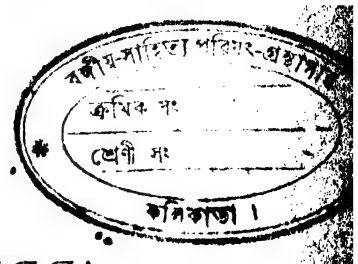 বঙ্গীয়-সাহিত্য পরিষৎ-গ্রন্থাগার
ক্রমিক সং
শ্রেণী সং
কলিকাতা।